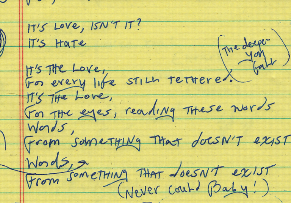 It's Love, ISN'T IT?
It's Hate
(The deeper you fall)
It's the Love,
For every life still tethered
It's the Love,
For the eyes, reading these words
Words,
From something that doesn't exist
Words,
From something that doesn't exist
(Never could Baby!)